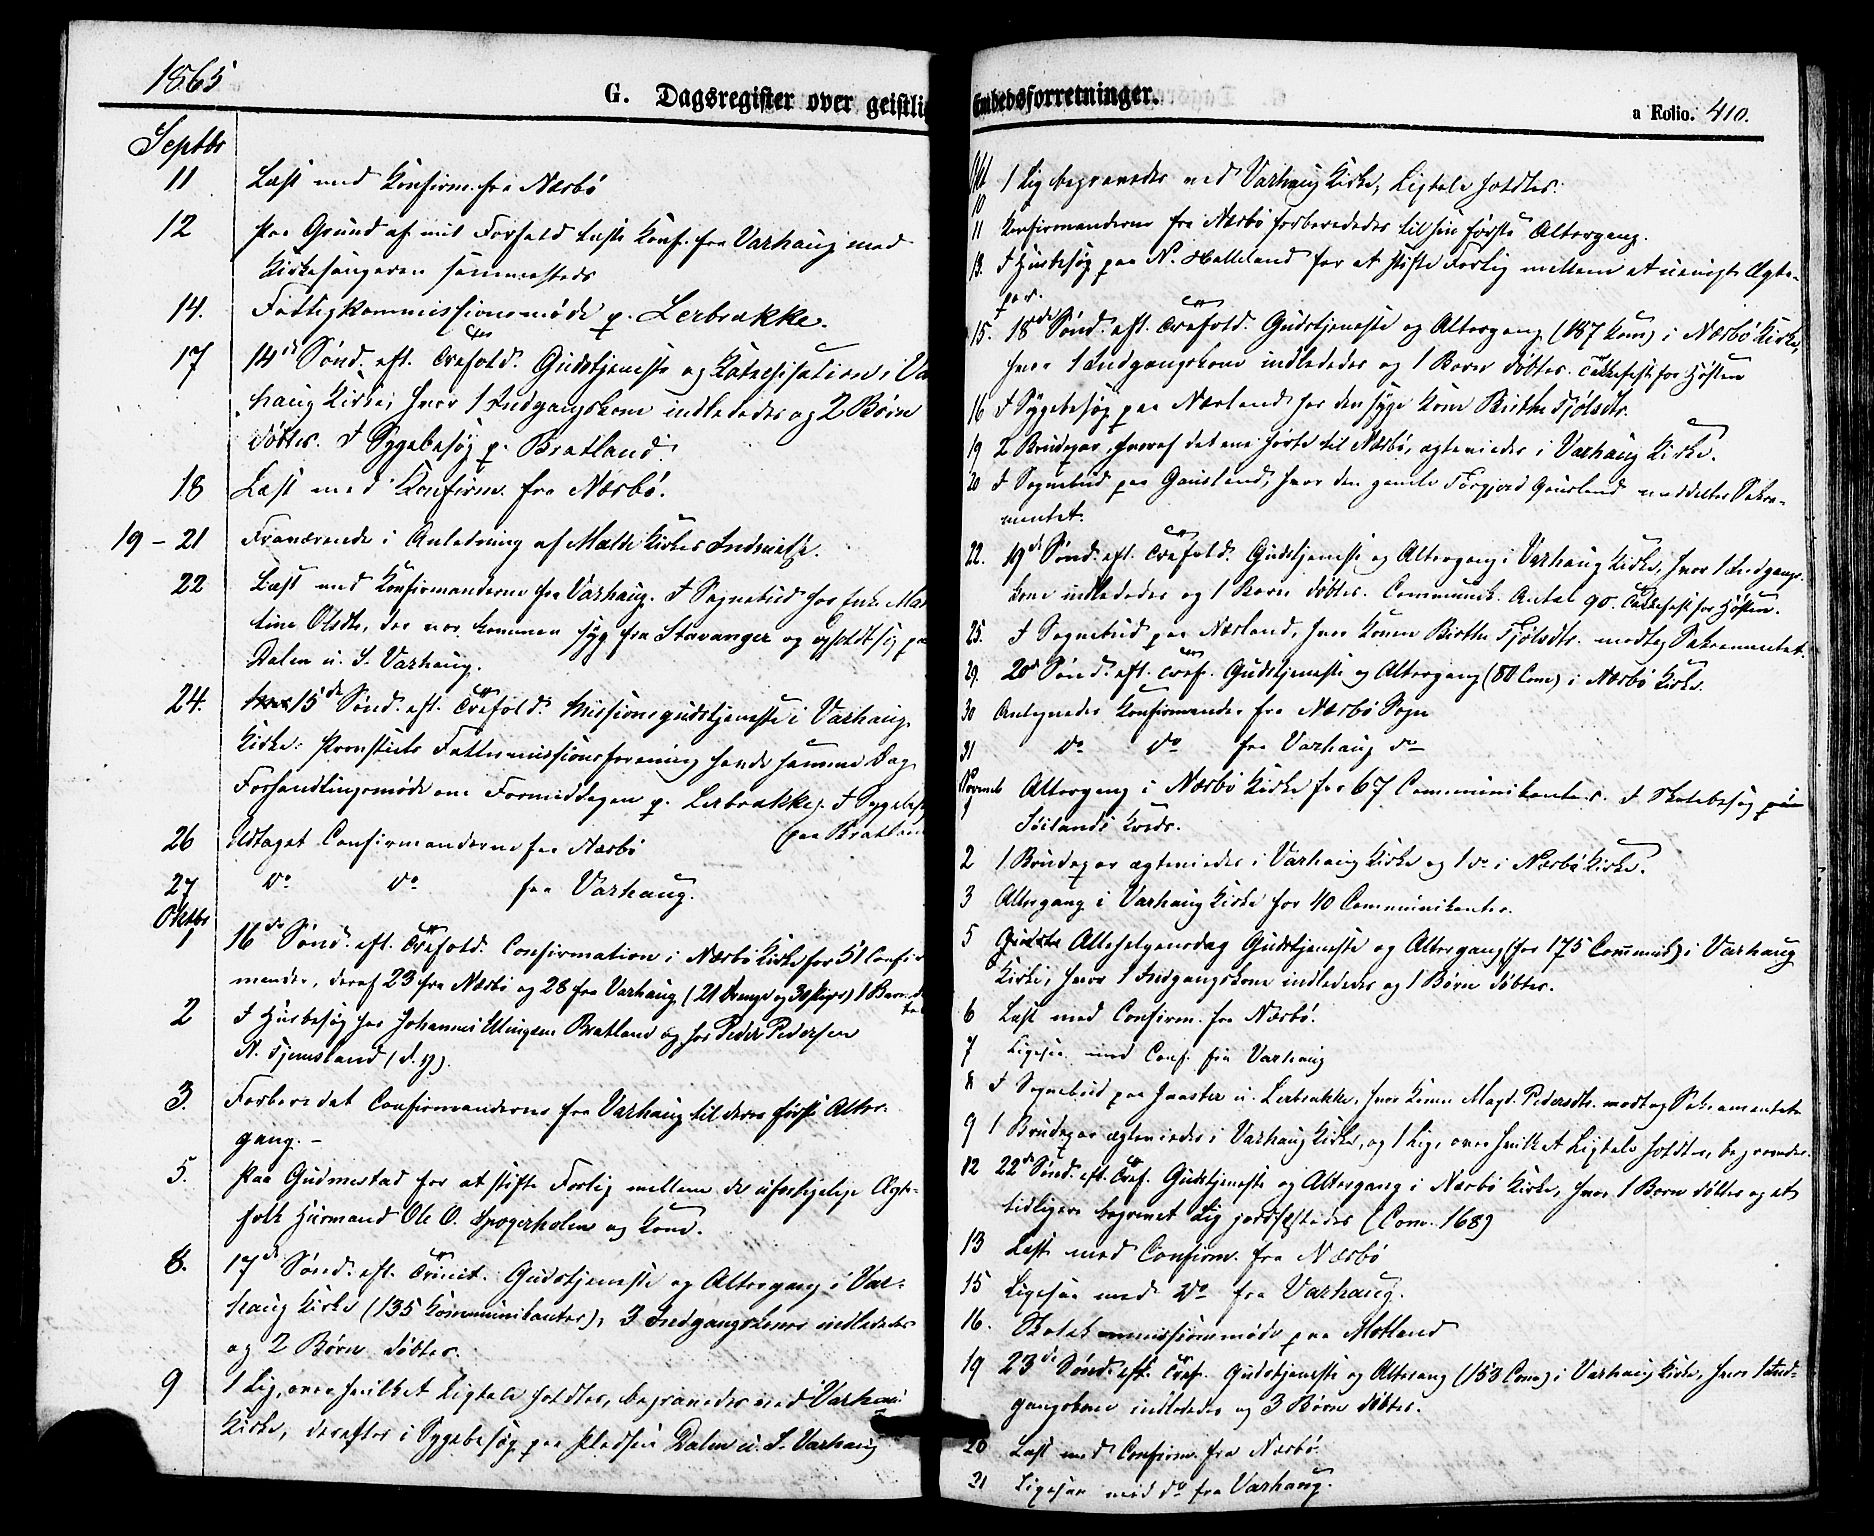 1865
G. Dagsregister over geistlig
Septbr
11 Læst med Konfirm. fra Nærbö
12 Paa Grund af mit Forfald læste Konf. fra Varhaug med
Kirkesangeren sammesteds
14. Fattigkommissionsmøde p. Lerbrække.
17 14de Sønd. eft. Trefold. Gudstjeneste og Katechisation i Va
haug Kirke, hvor 1 Indgangskone indlededes og 2 Børn
döbtes. I Sygebesög p. Bratland.
18 Læst med Konfirm. fra Nærbö.
19 - 21 Fraværende i Anledning af Malde Kirkes Indvielse.
22 Læst med Konfirmanderne fra Varhaug. I Sognebud hos Enke Mar
tine Olsdtr, der var kommen syg fra Stavanger og opholdt sig paa
Dalen u. S. Varhaug.
24. 15de Sønd. eft. Trefold. Missionsgudstjeneste i Varhaug
Kirke. Provstiets Fællesmissionsforening havde samme Dag
Forhandlingsmøde om Formiddagen p. Lerbrække. I Sygebesög
paa Bratland
26 Udtaget Confirmanderne fra Nærbö
27 do do fra Varhaug.
Oktbr
1 16de Sønd. eft. Trefold. Confirmation i Nærbö Kirke for 51 Confir
mander, deraf 23 fra Nærbö og 28 fra Varhaug (21 Drenge og 30 Piger) 1 Barn döbt
2 I Husbesög hos Johannes Bratland og hos Peder Pedersen
N. Tjemsland (d. y).
3. Forberedet Confirmanderne fra Varhaug til deres første Alter-
gang. -
5. Paa Gudmestad for at stifte Forlig mellem de uforligelige Ægte-
folk Husmand Ole O. og Kone.
8. 17de Sønd. eft. Trinit. Gudstjeneste og Altergang i Var-
haug Kirke (135 Kommunikanter), 3 Indgangskoner indlededes
og 2 Børn döbtes.
9 1 Lig, over hvilket Ligtale holdtes, begravedes ved Varhaug
Kirke, derefter i Sygebesög paa Pladsen Dalen u. S. Varhaug
Embedsforretninger.
a Folio. 410.
Okt
10 1 Lig begravedes ved Varhaug Kirke, Ligtale holdtes.
11 Konfirmanderne fra Nærbö forberededes til sin første Altergang.
13. I Husbesög paa N. Halleland for at stifte Forlig mellem et uenigt Ægte-
par.
15. 18de Sønd. eft. Trefold. Gudstjeneste og Altergang (187 Kom) i Nærbö Kirke,
hvor 1 Indgangskone indlededes og 1 Barn döbtes. Takkefest for Høsten
16 I Sygebesög paa Nærland hos den syge Kone Birthe Fjølsdtr.
19 2 Brudepar, hvoraf det ene hørte til Nærbö, ægteviedes i Varhaug Kirke.
20 I Sognebud paa Gausland, hvor den gamle Torgjerd Gausland meddeltes Sakra-
mentet.
22. 19de Sønd. eft. Trefold. Gudstjeneste og Altergang i Varhaug Kirke, hvor 1 Indgangs-
kone indlededes og 1 Barn döbtes. Communik. Antal 90. Takkefest for Høsten.
25. I Sognebud paa Nærland, hvor Konen Birthe Fjølsdtr. modtog Sakramentet.
29. 20de Sønd. eft. Tref. Gudstjeneste og Altergang (80 Com) i Nærbö Kirke.
30 Antegnedes Konfirmander fra Nærbö Sogn
31 do do fra Varhaug do
Novemb
1 Altergang i Nærbö Kirke for 67 Communikanter. I Skolebesög på
Søilands Kreds.
2 1 Brudepar ægteviedes i Varhaug Kirke og 1 do i Nærbö Kirke.
3 Altergang i Varhaug Kirke for 40 Communikanter.
5 Allehelgensdag Gudstjeneste og Altergang (for 175 Communik) i Varhaug
Kirke, hvor 1 Indgangskone indlededes og 1 Børn döbtes.
6 Læst med Confirm. fra Nærbö.
7 Ligesaa med Conf. fra Varhaug
8 I Sognebud paa u. Lerbrække, hvor Konen Magd. Pedersdtr. modtog Sakramentet
9 1 Brudepar ægteviedes i Varhaug Kirke, og 1 Lig, over hvilket Ligtale holdtes, begravedes.
12 22de Sønd. eft. Tref. Gudstjeneste og Altergang i Nærbö Kirke, hvor 1 Barn döbtes og et
tidligere begravet Lig jordfæstedes (Com. 168)
13 Læst med Confirm. fra Nærbö
15 Ligesaa med Do fra Varhaug.
16. Skolekommissionsmøde paa Motland
19 23de Sønd. eft. Tref. Gudstjeneste og Altergang (153 Com) i Varhaug Kirke, hvor 1 Ind-
gangskone indlededes og 3 Børn döbtes.
20 Læst med Confirm. fra Nærbö.
21 Ligesaa med do fra Varhaug.